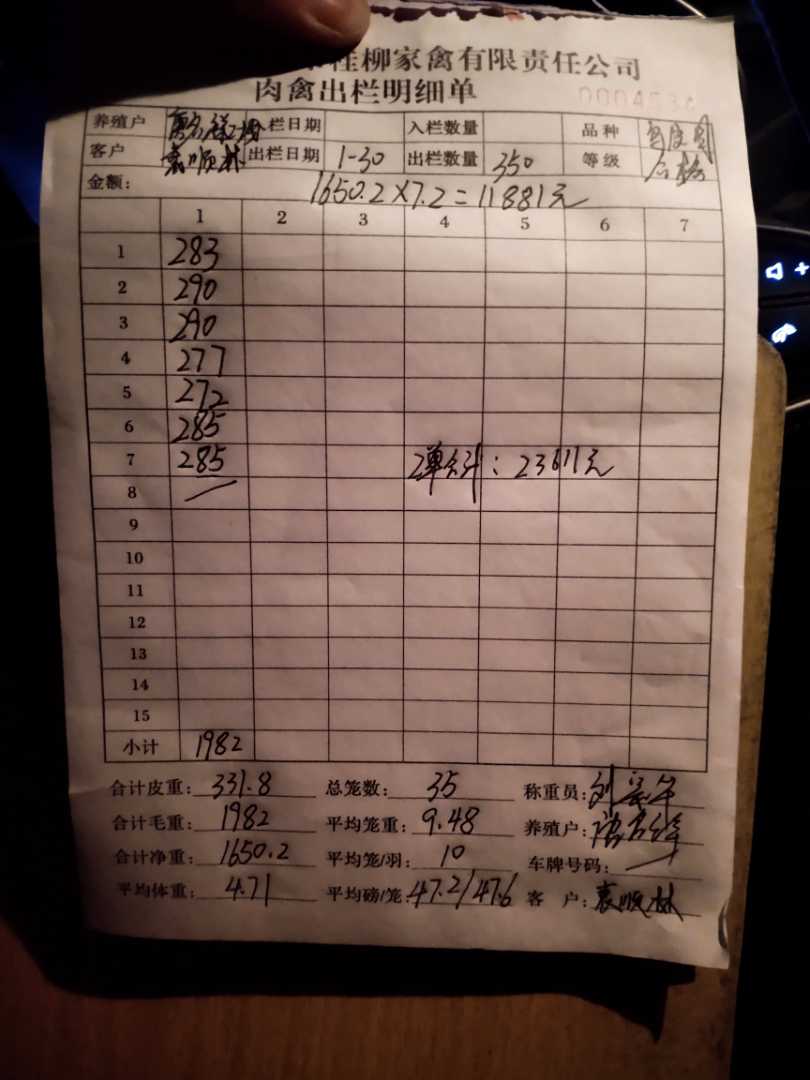 桂柳家禽有限责任公司
肉禽出栏明细单
养殖户 入栏日期 入栏数量 品种
客户 袁顺林 出栏日期 1-30 出栏数量 350 等级 合格
金额: 1650.2×7.2=11881元
1 2 3 4 5 6 7
1 283
2 290
3 290
4 277
5 272
6 285
7 285 2单合计: 23611元
8
9
10
11
12
13
14
15
小计 1982
合计皮重: 331.8 总笼数: 35 称重员: 刘
合计毛重: 1982 平均笼重: 9.48 养殖户:
合计净重: 1650.2 平均笼/羽: 10 车牌号码:
平均体重: 4.71 平均磅/笼: 47.2/47.6 客 户: 袁顺林